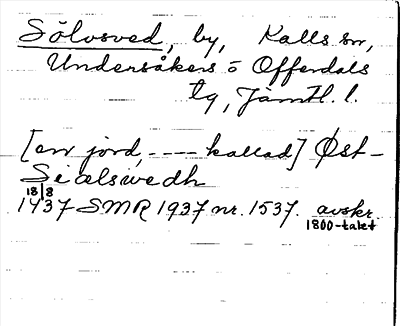 Sölvsved, by, Kalls sn,
Undersåkers o Offerdals
tg, Jämtl. l.
[en jord, ---- kallad] Øst-
Sielswedh
18/8
1437 SMR 1937 nr. 1537. avskr.
1800-talet